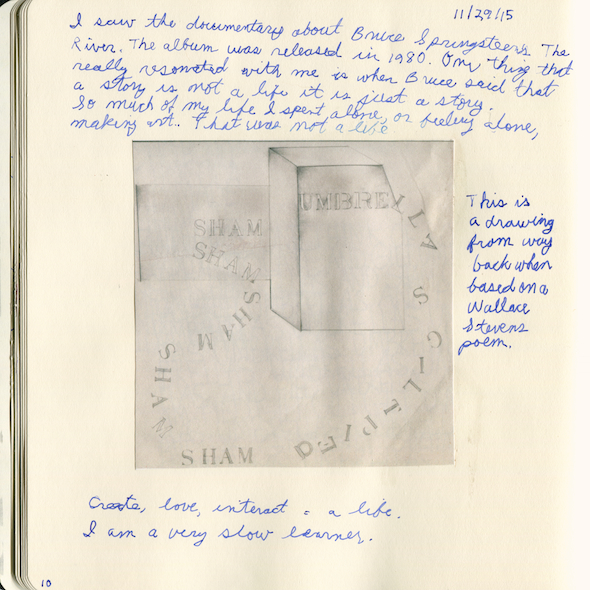 11/29/15
I saw the documentary about Bruce Springsteen's The
River. The album was released in 1980. One thing that
really resonated with me is when Bruce said that
a story is not a life it is just a story.
So much of my life I spent alone, or feeling alone,
making art. That was not a life
UMBRELLAS
SHAM
SHAM
SHAM
SHAM
SHAM
This is
a drawing
from way
back when
based on a
Wallace
Stevens
poem.
Create, love, interact = a life.
I am a very slow learner.
10